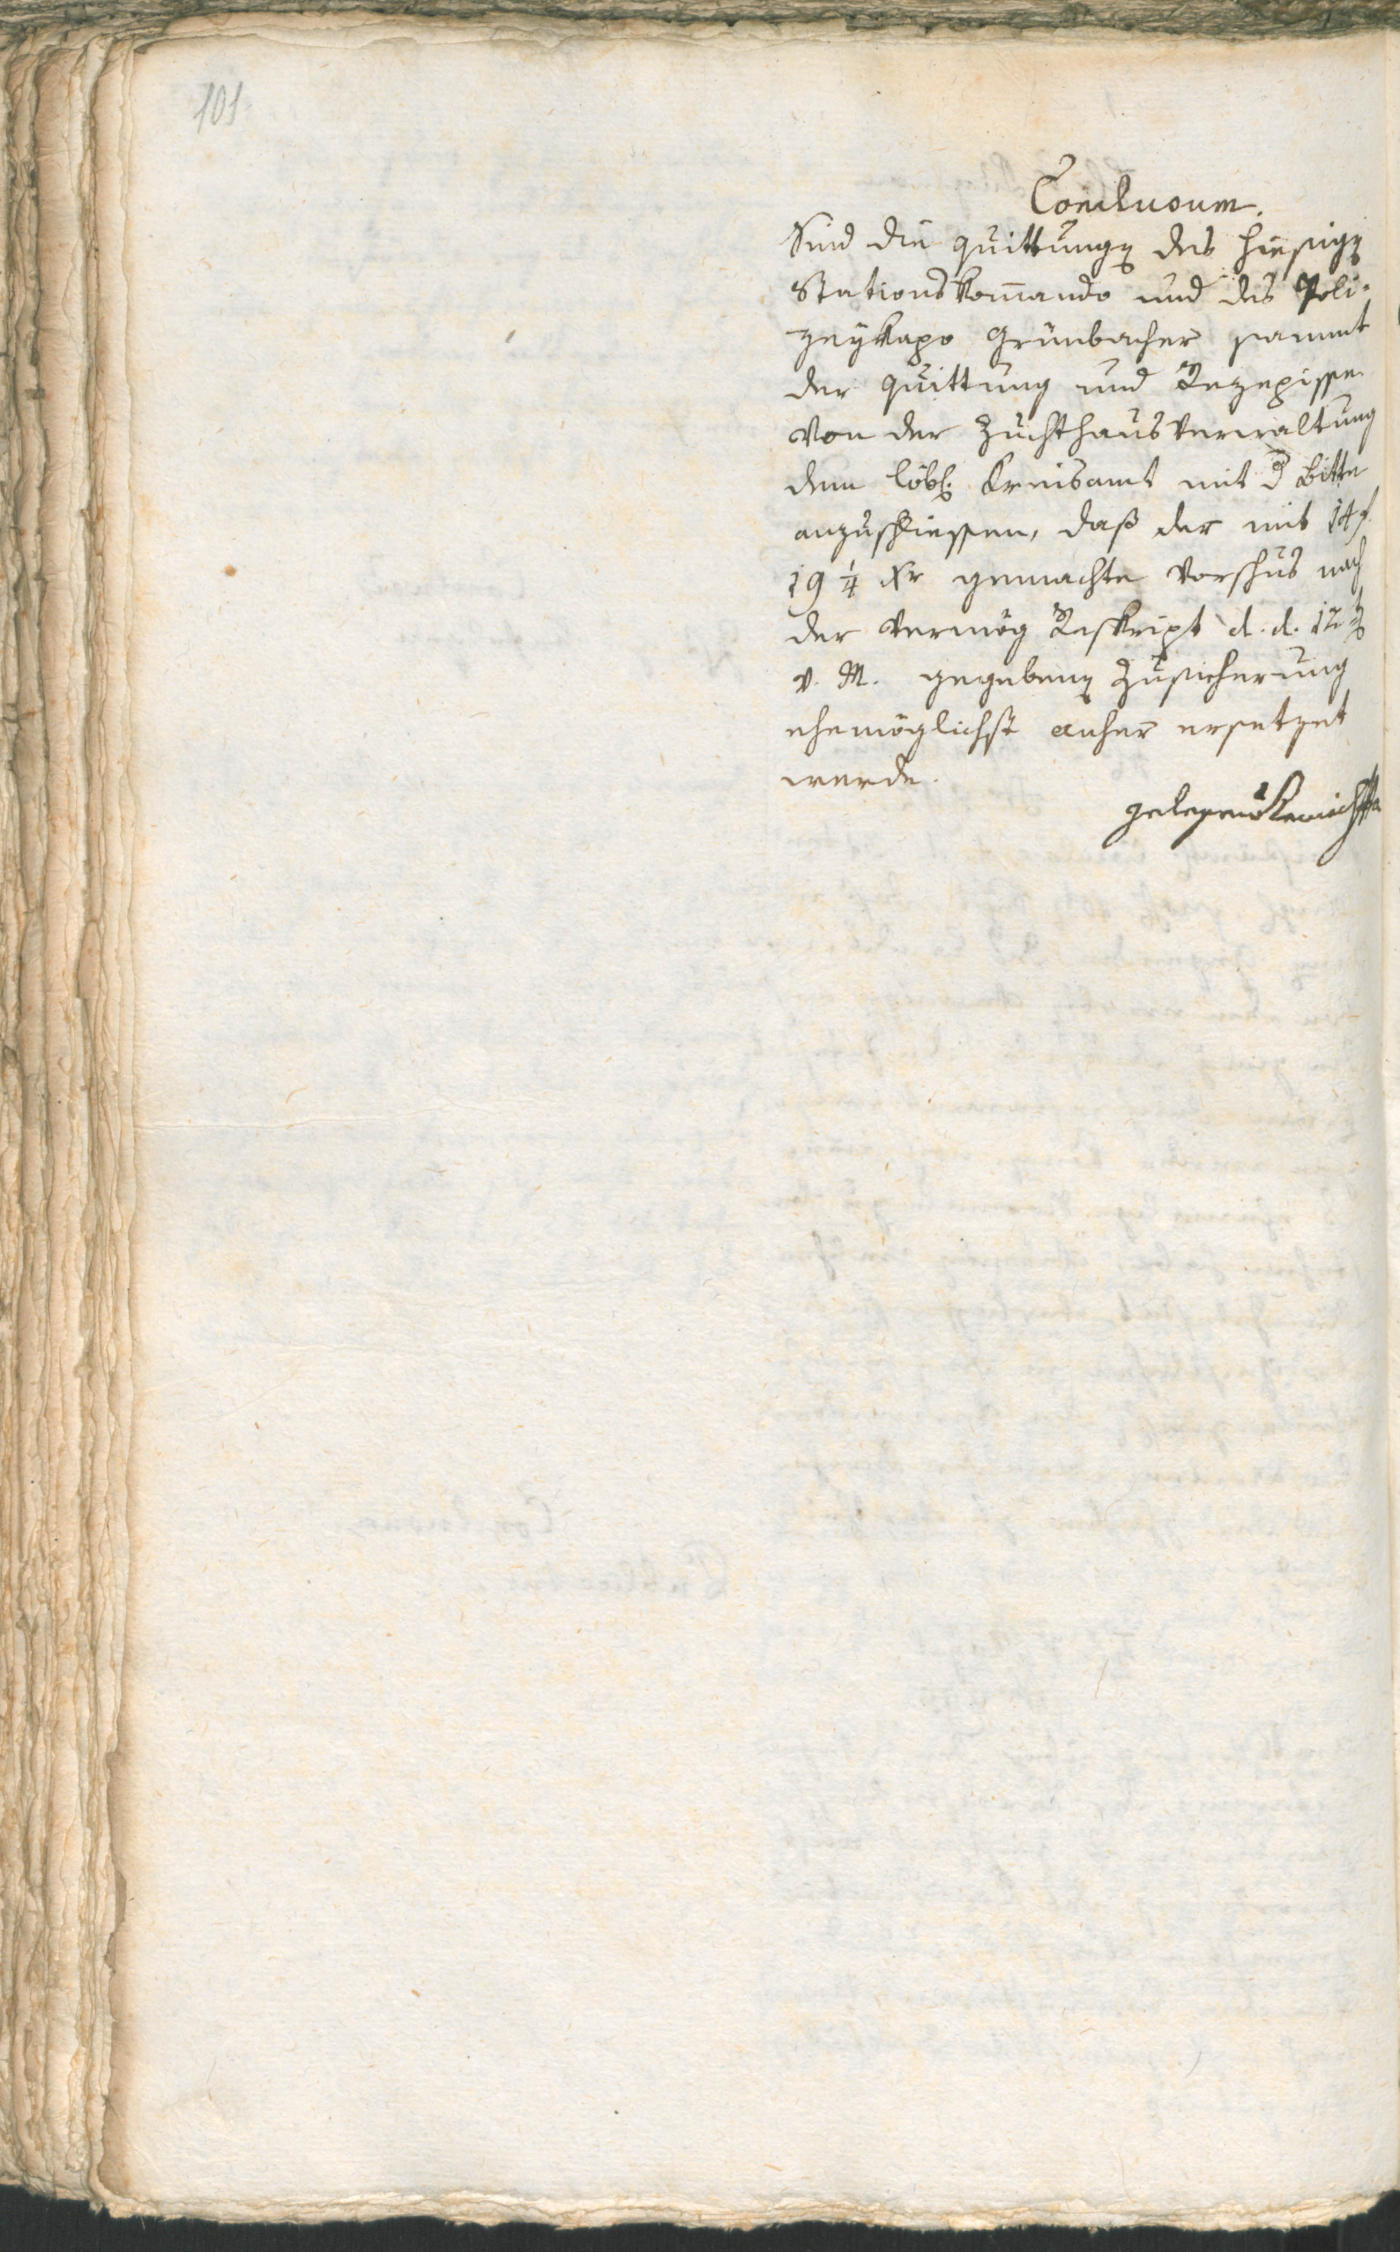 101
Conclusum.
Sind die Quittungen des hiesigen
Stationskommando und des Poli-
zeykapo Grünbacher sammt
der Quittung und Rezepisse
von der Zuchthausverwaltung
dem löbl. Kreisamt mit d. Bitte
anzuschliessen, daß der mit 14 f
19 1/4 Xr gemachte Vorschus nach
der vermög Reskript d. d. 12t
v. M. gegebenen Zusicherung
ehemöglichst anher ersetzet
werde.